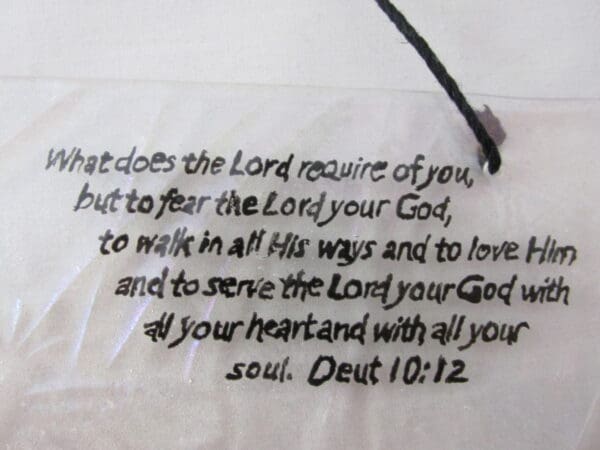 What does the Lord require of you,
but to fear the Lord your God,
to walk in all His ways and to love Him
and to serve the Lord your God with
all your heart and with all your
soul. Deut 10:12